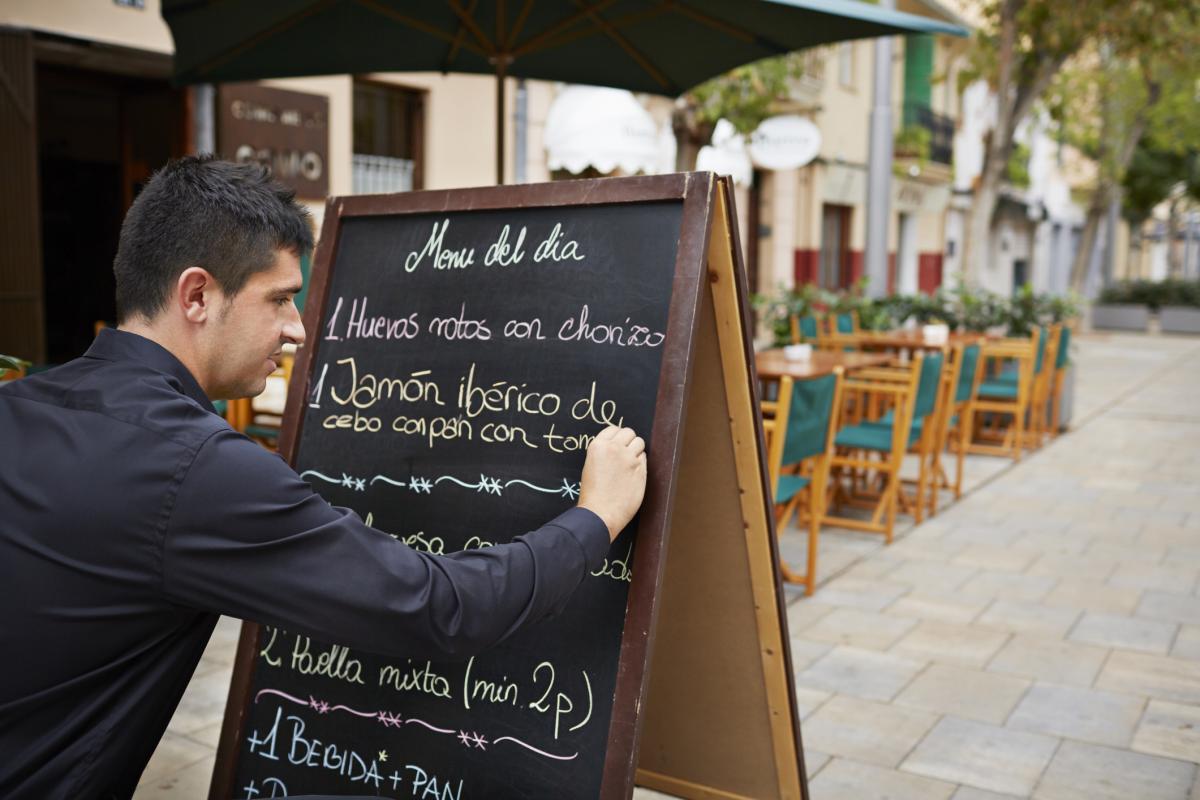 OSMO
Menu del dia
1. Huevos rotos con chorizo
1 Jamón ibérico de
cebo con pan con tom
2. Paella mixta (min. 2p)
+1 BEBIDA* + PAN